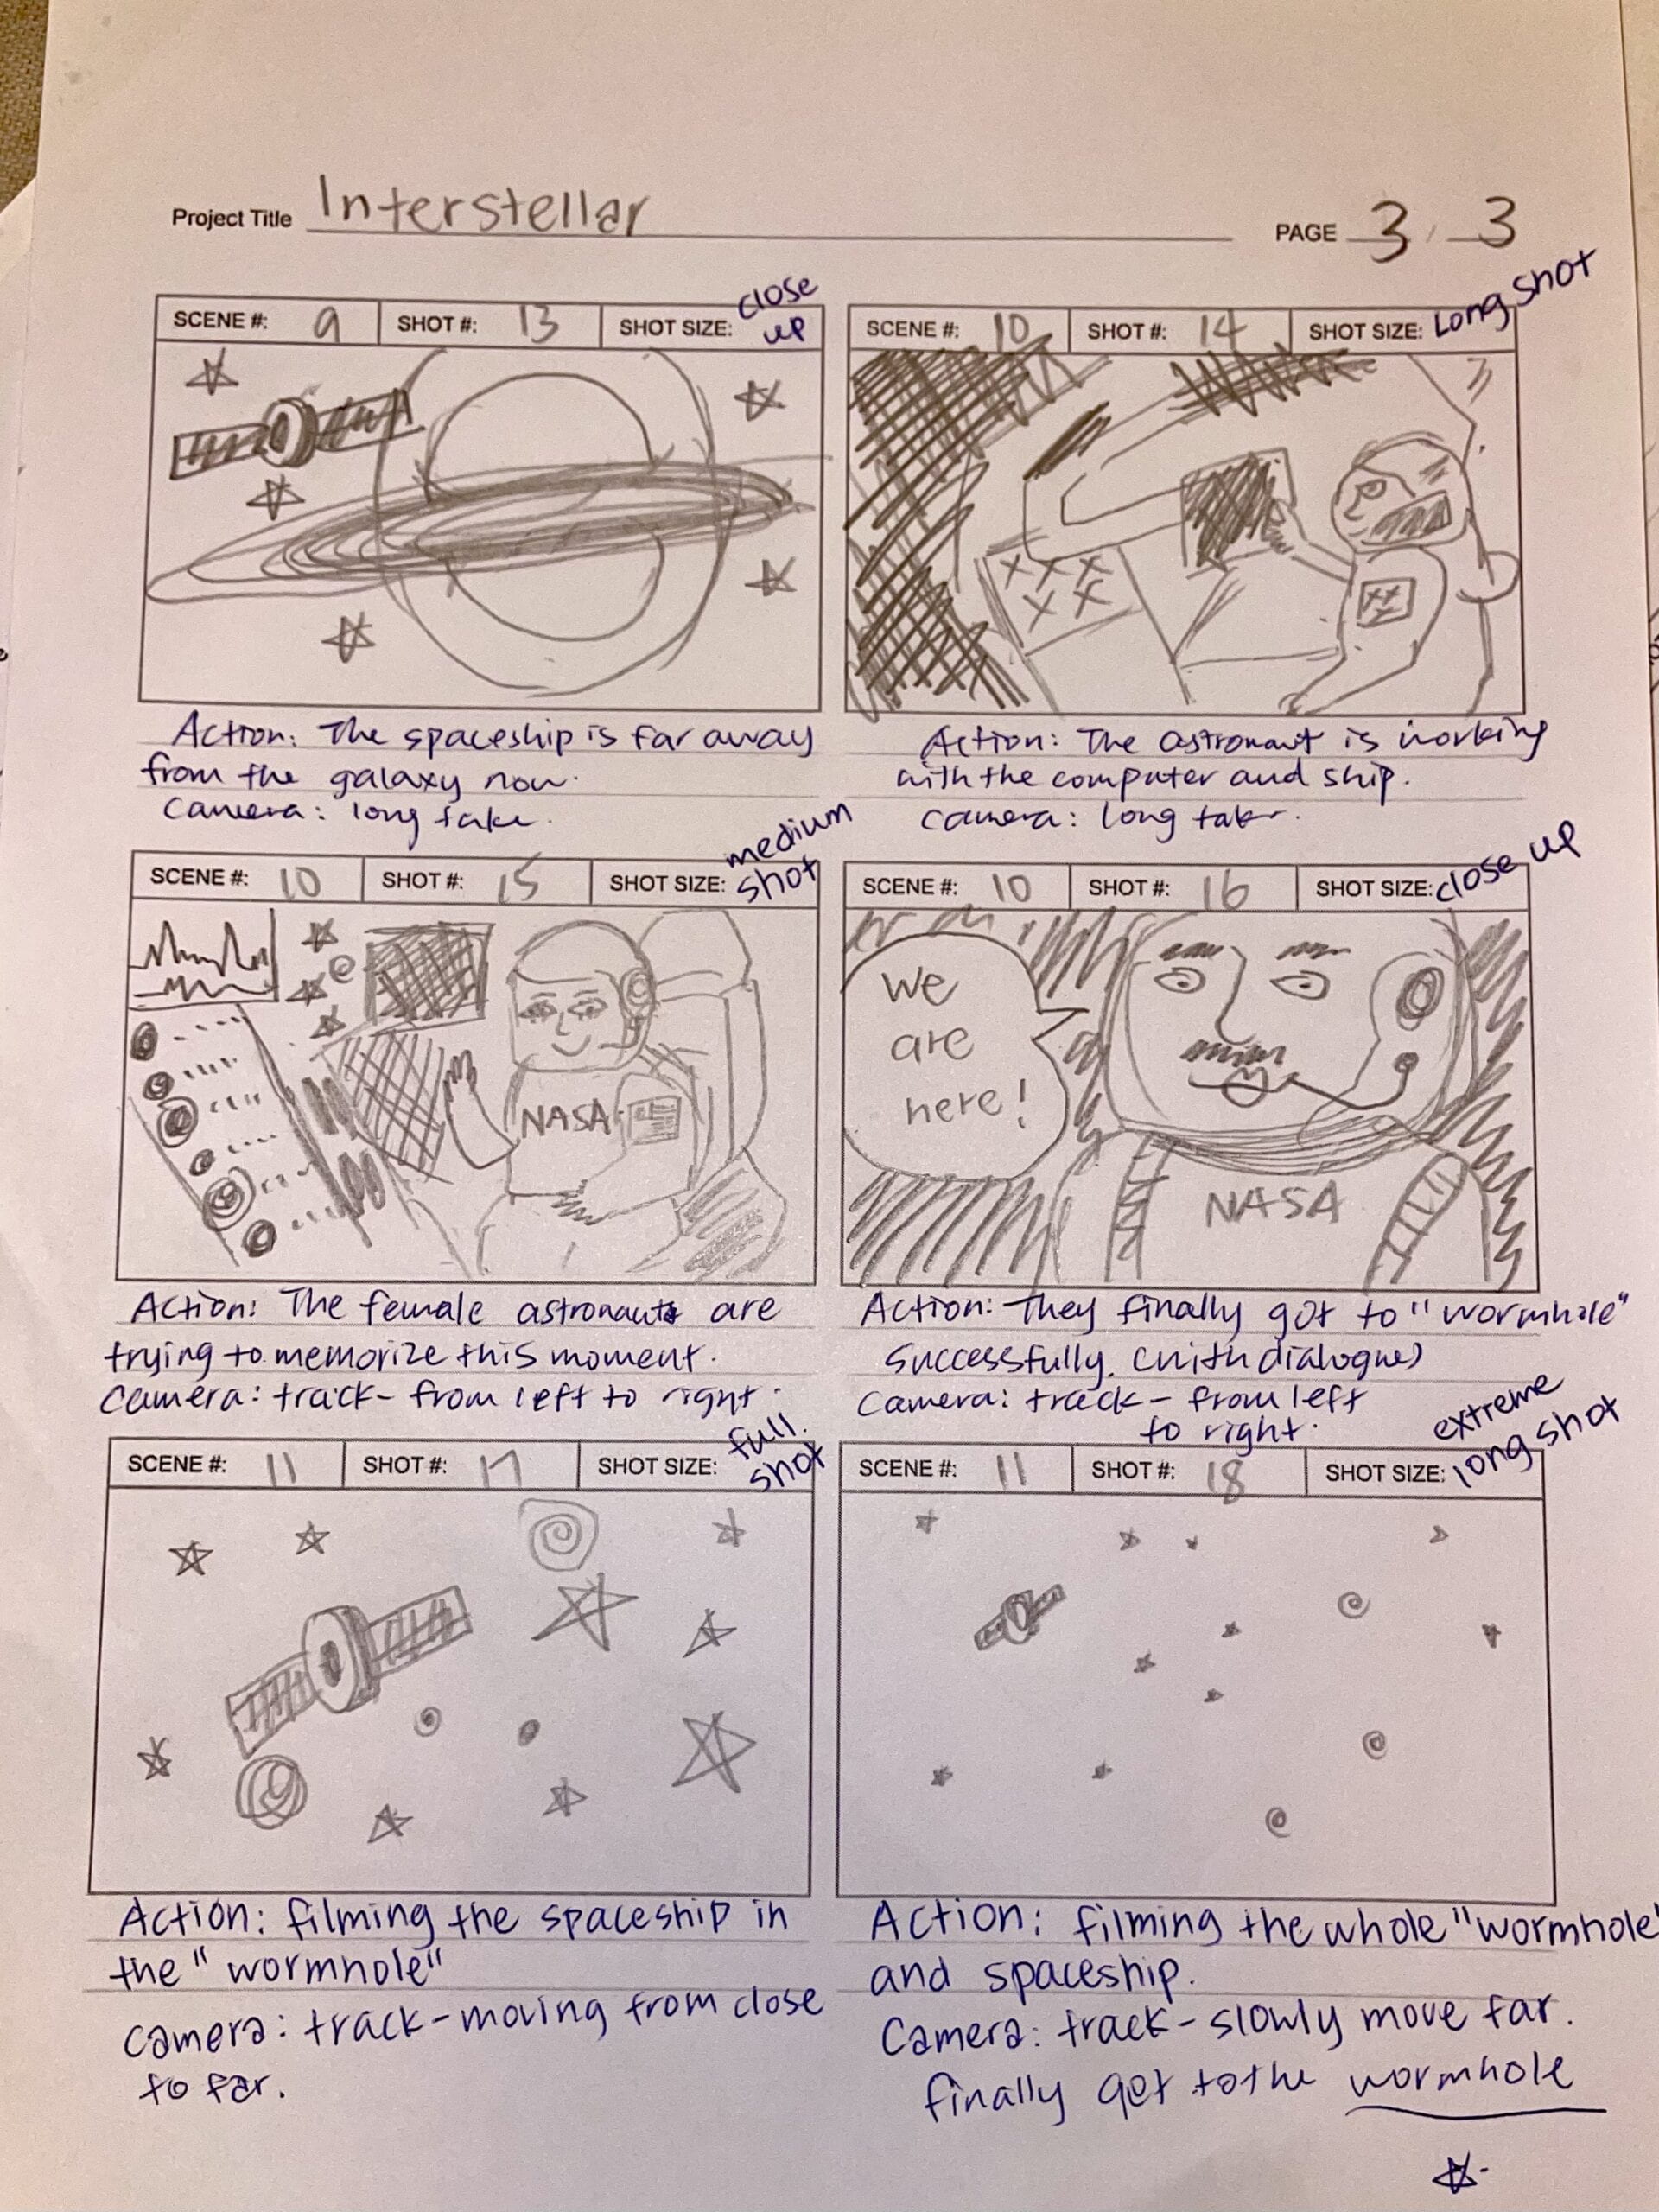 Project Title Interstellar PAGE 3 / 3
SCENE #: 9 SHOT #: 13 SHOT SIZE: close up
Action: The spaceship is far away
from the galaxy now.
Camera: long take.
SCENE #: 10 SHOT #: 14 SHOT SIZE: Long shot
Action: The astronaut is working
with the computer and ship.
Camera: long take.
SCENE #: 10 SHOT #: 15 SHOT SIZE: medium shot
NASA
Action: The female astronauts are
trying to memorize this moment.
Camera: track - from left to right.
SCENE #: 10 SHOT #: 16 SHOT SIZE: close up
We
are
here!
NASA
Action: They finally got to "wormhole"
successfully. (with dialogue)
Camera: track - from left
to right.
SCENE #: 11 SHOT #: 17 SHOT SIZE: full shot
Action: filming the spaceship in
the "wormhole"
Camera: track - moving from close
to far.
SCENE #: 11 SHOT #: 18 SHOT SIZE: extreme long shot
Action: filming the whole "wormhole"
and spaceship.
Camera: track - slowly move far.
finally get to the wormhole